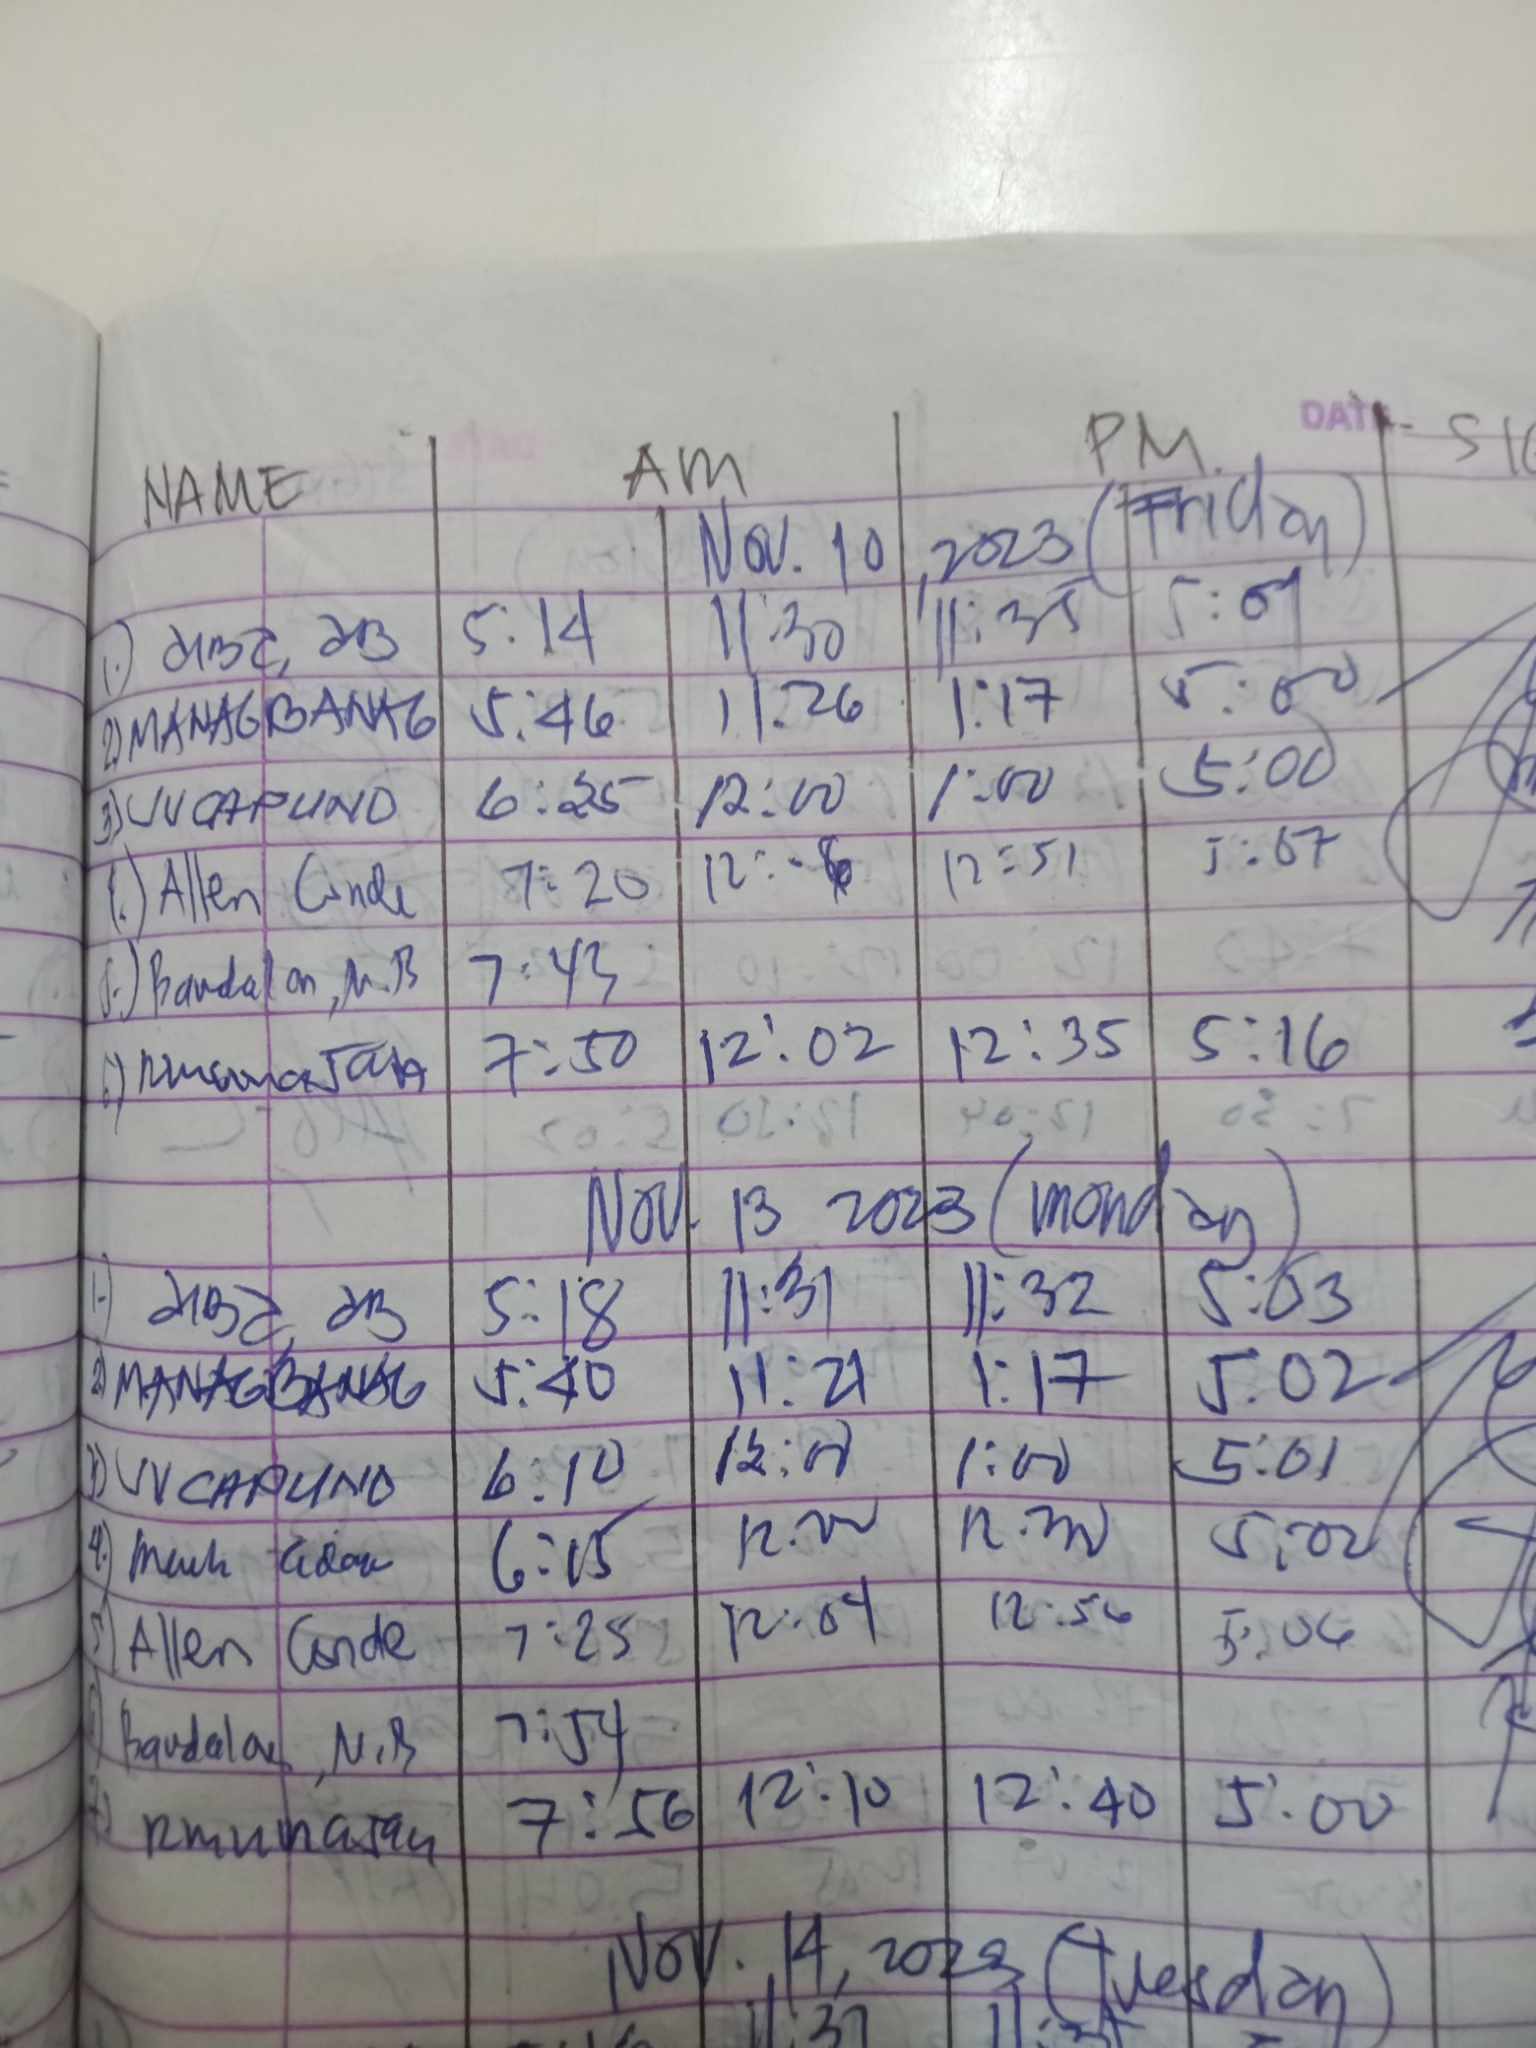 NAME AM PM. SIG
Nov. 10, 2023 (Friday)
1.) 5:14 11:30 11:35 5:01
2) MANAGBANAG 5:46 11:26 1:17 5:00
3) JVCAPUNO 6:25 12:00 1:00 5:00
Allen Conde 7:20 12: 12:51 5:07
5.) Bandalan, N.B 7:43
7:50 12:02 12:35 5:16
Nov. 13 2023 (monday)
1.) 5:18 11:31 11:32 5:03
2) MANAGBANAG 5:40 11:21 1:17 5:02
3) JVCAPUNO 6:10 12:00 1:00 5:01
4.) Mark 6:15 12:00 12:30 5:02
5) Allen Conde 7:25 12:04 12:56 5:06
Bandalan, N.B 7:54
7:56 12:10 12:40 5:00
Nov. 14, 2023 (Tuesday)
11:37 11:35